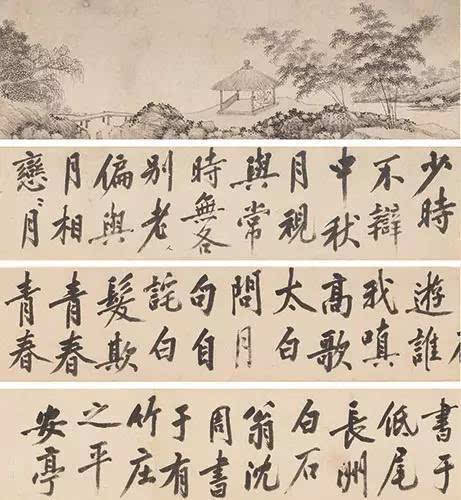 少時
不辯
中秋
月視
與常
時無各
別老人
偏與
月相
戀〻月
遊誰
我嗔
高歌
太白
問月
句自
詫白
髮欺
青春
青春
書于
低尾
長洲
白石
翁沈
周書
于有
竹庄
之平
安亭